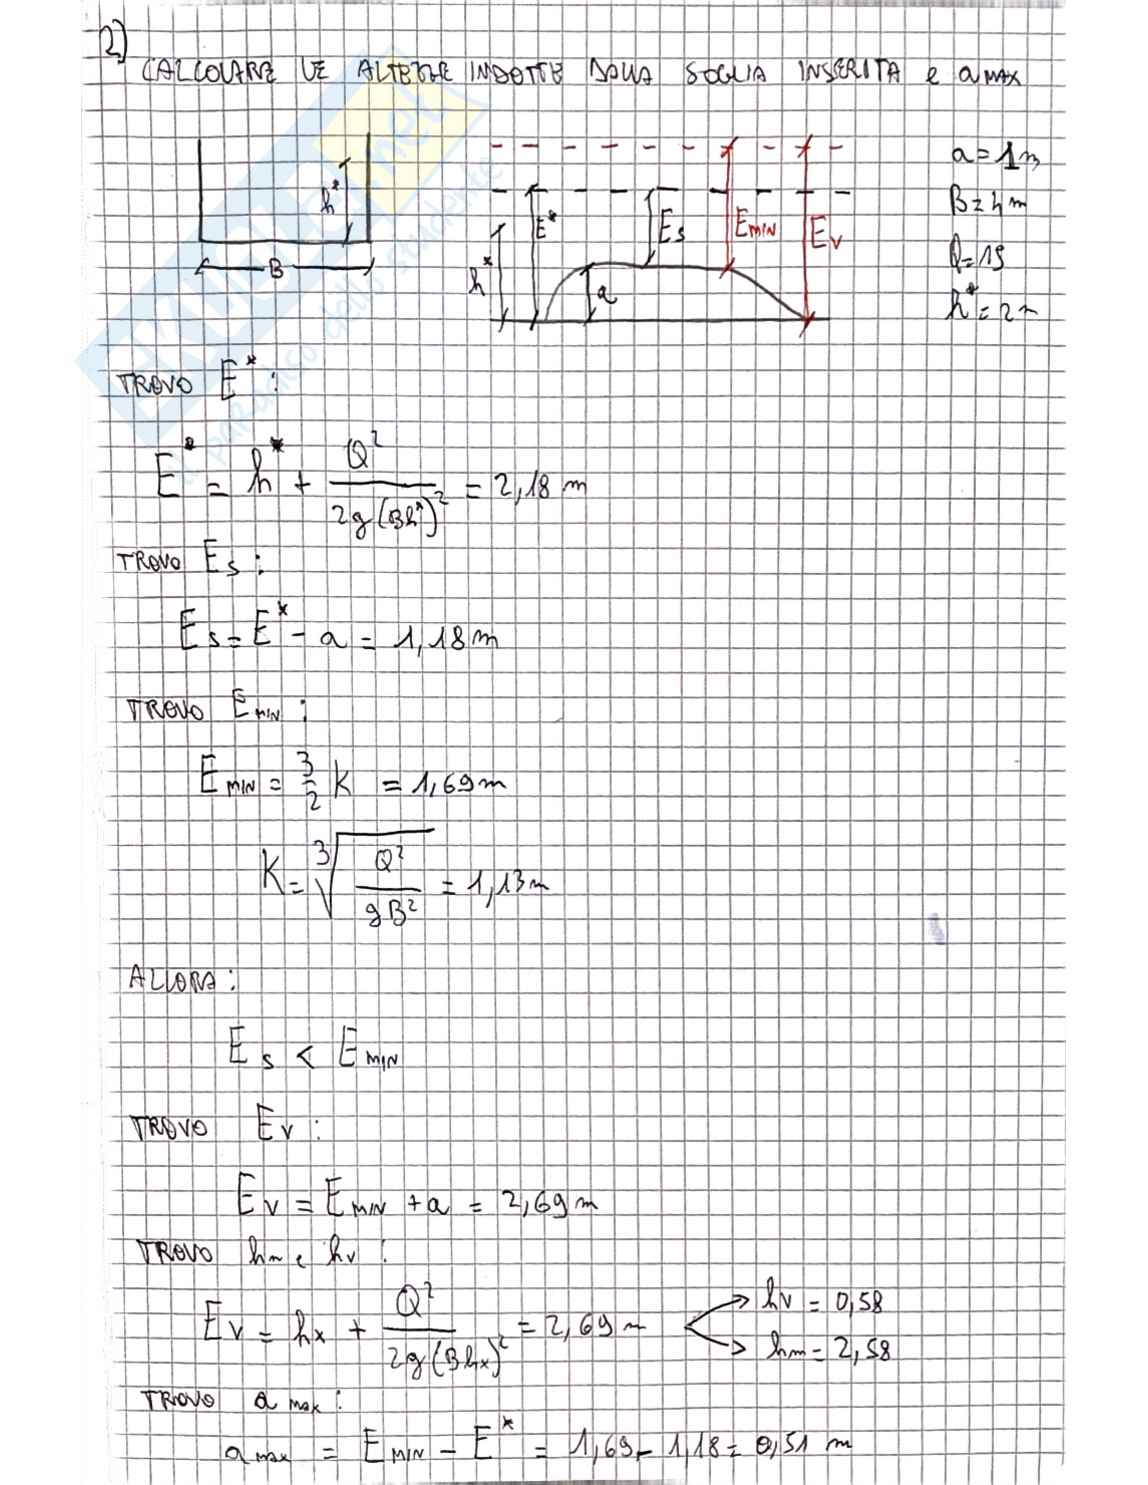 2)
CALCOLARE LE ALTEZZE INDOTTE DALLA SOGLIA INSERITA e a MAX
h* B
h* E* a Es EMIN Ev
a = 1m
B = 4m
Q = 15
h* = 2m
TROVO E* :
E* = h* + Q² / 2g(Bh*)² = 2,18 m
TROVO Es :
Es = E* - a = 1,18 m
TROVO EMIN :
EMIN = 3/2 K = 1,69 m
K = ³√(Q² / gB²) = 1,13 m
ALLORA :
Es < EMIN
TROVO Ev :
Ev = EMIN + a = 2,69 m
TROVO hm e hv :
Ev = hx + Q² / 2g(Bhx)² = 2,69 m
hv = 0,58
hm = 2,58
TROVO a max :
a max = EMIN - E* = 1,69 - 1,18 = 0,51 m